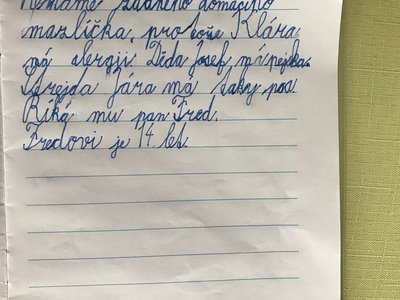 Nemáme žádného domácího
mazlíčka, pro tože Klára
má alergii. Děda Josef má pejska.
Strejda Jára má taky psa.
Říká mu pan Fred.
Fredovi je 14 let.